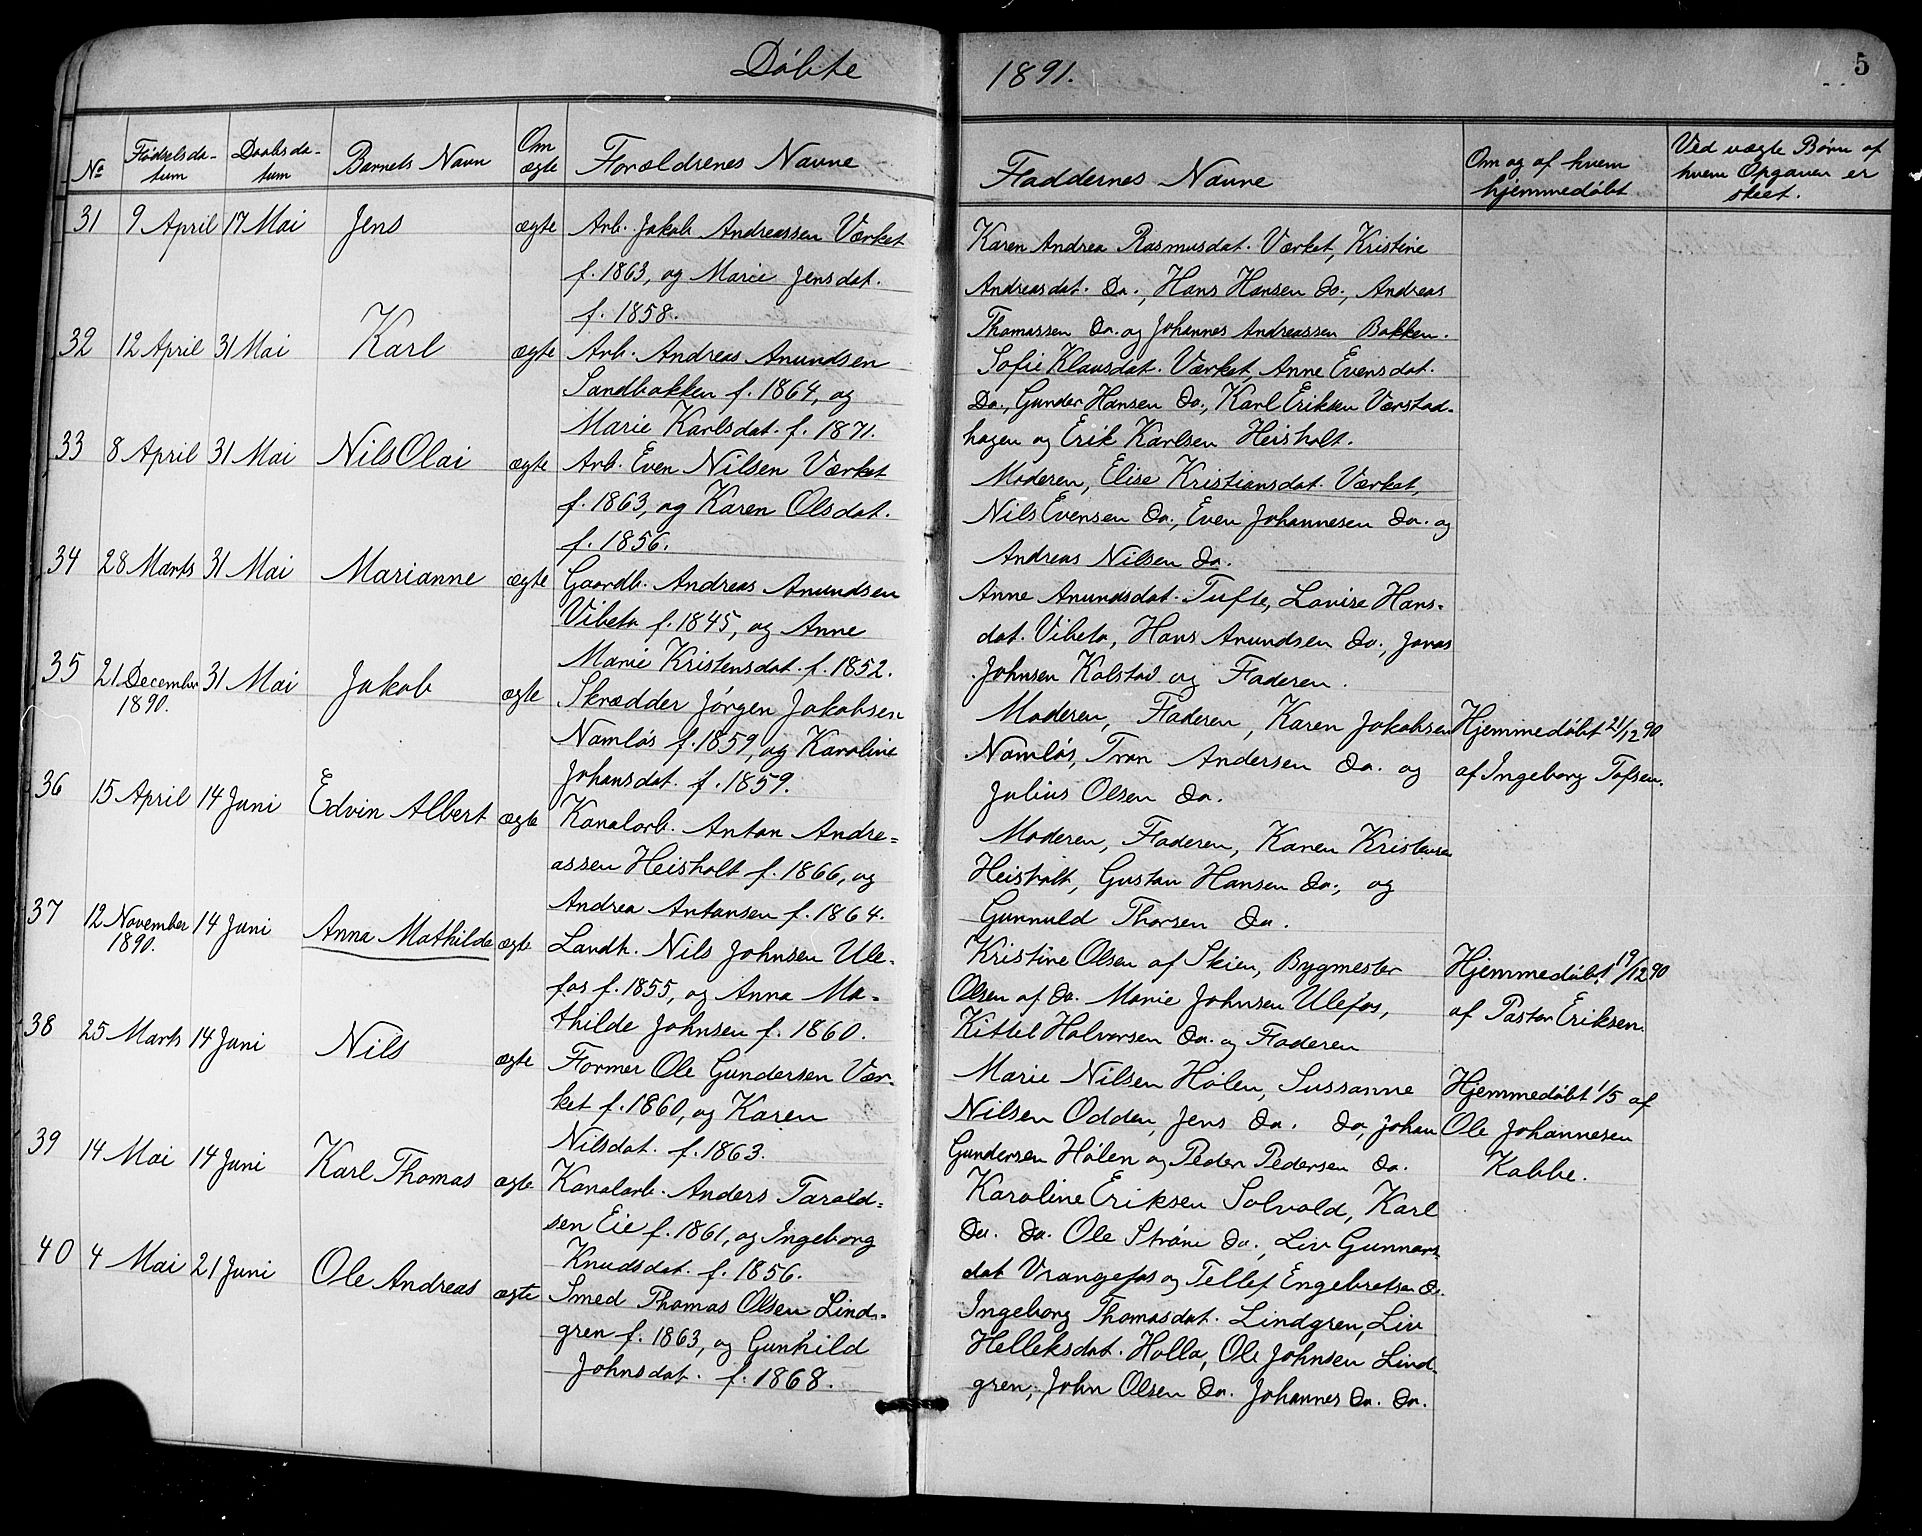 Döbte 1891. 5
No
Fødselsda-
tum
Daabsda-
tum
Barnets Navn
Om
ægte
Forældrenes Navne
Faddernes Navne
Om og af hvem
hjemmedøbt
Ved uægte Børn af
hvem Opgaven er
skeet.
31 9 April 17 Mai Jens ægte
Arb. Jakob Andreassen Værket
f. 1863, og Marie Jensdat.
f. 1858.
Karen Andrea Rasmusdat. Værket, Kristine
Andreasdat. Do., Hans Hansen do., Andreas
Thomassen Do. og Johannes Andreassen Bakken.
32 12 April 31 Mai Karl ægte
Arb. Andreas Anundsen
Sandbakken f. 1864, og
Marie Karlsdat. f. 1871.
Sofie Klausdat. Værket, Anne Evensdat.
Do., Gunder Hansen do., Karl Eriksen Værstad-
hagen og Erik Karlsen Heisholt.
33 8 April 31 Mai Nils Olai ægte
Arb. Even Nilsen Værket
f. 1863, og Karen Olsdat.
f. 1856.
Moderen, Elise Kristiansdat. Værket,
Nils Evensen do., Even Johannesen do. og
Andreas Nilsen do.
34 28 Marts 31 Mai Marianne ægte
Gaardb. Andreas Anundsen
Vibeto f. 1845, og Anne
Marie Kristensdat. f. 1852.
Anne Anundsdat. Tufte, Lovise Hans-
dat. Vibeto, Hans Anundsen do., Jonas
Johnsen Kolstad og Faderen.
35 21 December 31 Mai Jakob ægte
1890.
Skrædder Jørgen Jakobsen
Namløs f. 1859, og Karoline
Johansdat. f. 1859.
Moderen, Faderen, Karen Jakobsen
Namløs, Tron Andersen do. og
Julius Olsen do.
Hjemmedøbt 21/12 90
af Ingeborg Tofsen.
36 15 April 14 Juni Edvin Albert ægte
Kanalarb. Anton Andre-
assen Heisholt f. 1866, og
Andrea Antonsen f. 1864.
Moderen, Faderen, Karen Kristensen
Heisholt, Gustav Hansen do., og
Gunnuld Thorsen do.
37 12 November 14 Juni Anna Mathilde ægte
1890.
Landh. Nils Johnsen Ule-
fos f. 1855, og Anna Ma-
thilde Johnsen f. 1860.
Kristine Olsen af Skien, Bygmester
Olsen af do. Marie Johnsen Ulefos,
Kittel Halvorsen do. og Faderen
Hjemmedøbt 19/12 90
af Pastor Eriksen.
38 25 Marts 14 Juni Nils ægte
Former Ole Gundersen Vær-
ket f. 1860, og Karen
Nilsdat. f. 1863.
Marie Nilsen Holen, Sussanne
Nilsen Odden, Jens do. do, Johan
Gundersen Holen og Peder Pedersen do.
Hjemmedøbt 1/5 af
Ole Johannesen
Kabbe.
39 14 Mai 14 Juni Karl Thomas ægte
Kanalarb. Anders Tarald-
sen Eie f. 1861, og Ingeborg
Knudsdat. f. 1856.
Karoline Eriksen Solvold, Karl
Do. do. Ole Strøm do., Liv Gunnars-
dat Vrangefos og Tellef Engebretsen do.
40 4 Mai 21 Juni Ole Andreas ægte
Smed Thomas Olsen Lind-
gren f. 1863, og Gunhild
Johnsdat. f. 1868.
Ingeborg Thomasdat. Lindgren, Liv
Helleksdat. Holla, Ole Johnsen Lind-
gren, John Olsen do. Johannes do. do.